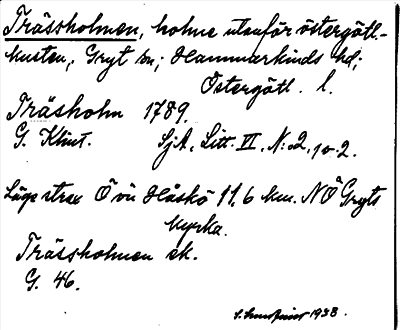 Trässholmen, holme utanför östergötl.-
kusten, Gryt sn; Hammarkinds hd;
Östergötl. l.
Träsholm 1789.
G. Klint. Sj.A, Litt. VI, N:o 2, 10-2.
Läge strax Ö om Håskö 11,6 km. NÖ Gryts
kyrka.
Trässholmen ek.
G. 46.
1938.